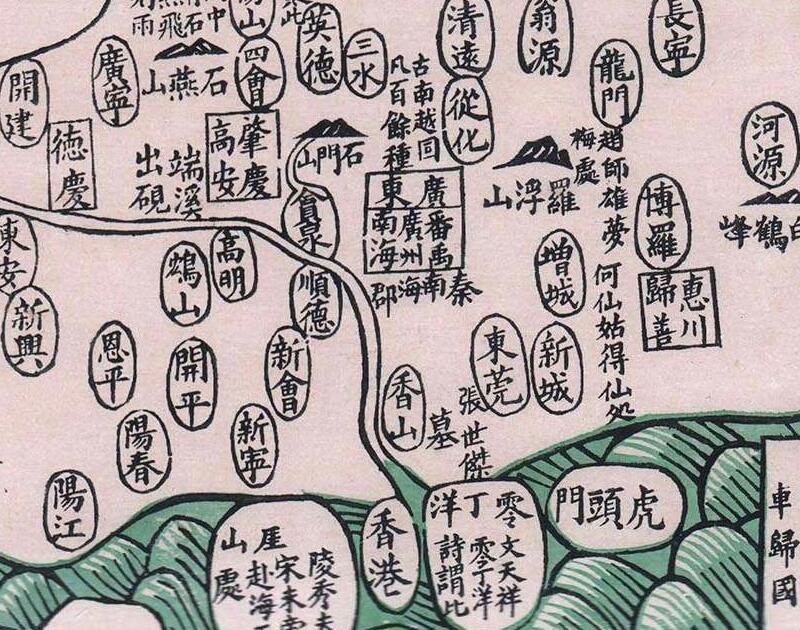 長寧
翁源
清遠
英德
三水
四會
廣寧
開建
石燕山
龍門
從化
古南越囘
凡百餘種
河源
白鶴峰
趙師雄夢
梅處
羅浮山
石門山
肇慶
高安
德慶
端溪
出硯
廣東
番禺
廣州
南海
秦南海郡
博羅
惠川
歸善
增城
何仙姑得仙処
順德
高明
東安
新興
恩平
開平
新會
東莞
新城
香山
張世傑
墓
新寧
陽春
陽江
虎頭門
零丁洋
文天祥
零丁洋
詩謂此
香港
陵秀夫
宋末帝
赴海
厓山處
車歸國